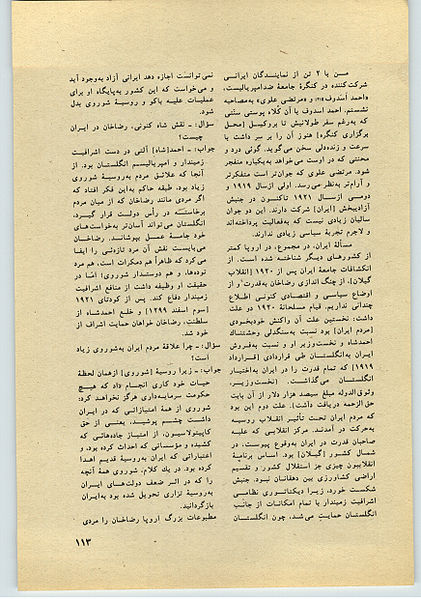 من با ۲ تن از نمایندگان ایرانی
شرکت‌کننده در کنگرهٔ جامعهٔ ضدامپریالیست،
«احمد اسدوف» و «مرتضی علوی» به‌مصاحبه
نشستم. احمد اسدوف با آن کلاه پوستی سنتی
که به‌رغم سفر طولانیش تا بروکسل [محل
برگزاری کنگره] هنوز آن را بر سر داشت با
سرعت و زنده‌دلی سخن می‌گوید. گوئی درد و
محنتی که در اوست می‌خواهد به‌یکباره منفجر
شود. مرتضی علوی که جوان‌تر است متفکرتر
و آرام‌تر به‌نظر می‌رسد. اولی از سال ۱۹۱۹ و
دومی از سال ۱۹۲۱ تاکنون در جنبش
آزادیبخش [ایران] شرکت دارند. این دو جوان
سالیان زیادی نیست که به‌فعالیت پرداخته‌اند
و لاجرم تجربهٔ سیاسی زیادی ندارند.
مسألهٔ ایران، در مجموع، در اروپا کمتر
از کشورهای دیگر شناخته شده است. از
انکشافات جامعهٔ ایران پس از ۱۹۲۰ [انقلاب
گیلان]، از چنگ اندازی رضاخان به‌قدرت و از
اوضاع سیاسی و اقتصادی کنونی اطلاع
چندانی نداریم. قیام مسلحانهٔ ۱۹۲۰ دو علت
داشت: نخستین علت آن واکنش خودبخودی
[مردم ایران] بود نسبت به‌سنگدلی وحشتناک
احمدشاه و نخست‌وزیر او و نسبت به‌فروش
ایران به‌انگلستان طی قراردادی [قرارداد
۱۹۱۹] که تمام قدرت را در ایران به‌اختیار
انگلستان می‌گذاشت. (نخست‌وزیر،
وثوق‌الدوله مبلغ سیصد هزار دلار از آن بابت
حق‌الزحمه دریافت داشت). علت دوم این بود
که مردم ایران تحت تأثیر انقلاب روسیه
به‌حرکت در آمدند. مرکز انقلابی که علیه
صاحبان قدرت در ایران به‌وقوع پیوست، در
شمال کشور [گیلان] بود. اساس برنامهٔ
انقلابیون چیزی جز استقلال کشور و تقسیم
اراضی کشاورزی بین دهقانان نبود. جنبش
شکست خورد، زیرا دیکتاتوری نظامی
اشرافیت زمیندار با تمام امکانات از جانب
انگلستان حمایت می‌شد، چون انگلستان
نمی‌توانست اجازه دهد ایرانی آزاد به‌وجود آید
و می‌خواست که این کشور به‌پایگاه او برای
عملیات علیه باکو و روسیهٔ شوروی بدل
شود.
سؤال: ـ نقش شاه کنونی، رضاخان در ایران
چیست؟
جواب: ـ احمد[شاه] آلتی در دست اشرافیت
زمیندار و امپریالیسم انگلستان بود. از
آنجا که علائق مردم به‌روسیهٔ شوروی
زیاد بود، طبقه حاکم به‌این فکر افتاد که
اگر مردی مانند رضاخان که از میان مردم
برخاسته در رأس دولت قرار گیرد،
انگلستان می‌تواند آسان‌تر به‌خواست‌های
خود جامهٔ عمل بپوشاند. رضاخان
می‌بایست نقش آن مرد تازه‌ئی را ایفا
می‌کرد که ظاهراً هم دمکرات است، هم مرد
توده‌ها، و هم دوستدار شوروی؛ اما در
حقیقت او وظیفه داشت از منافع اشرافیت
زمیندار دفاع کند. پس از کودتای ۱۹۲۱
[سوم اسفند ۱۲۹۹] و خلع احمدشاه از
سلطنت، رضاخان خواهان حمایت اشراف از
خود شد.
سؤال: ـ چرا علاقهٔ مردم ایران به‌شوروی زیاد
است؟
جواب: ـ زیرا روسیهٔ [شوروی] از همان لحظهٔ
حیات خود کاری انجام داد که هیچ
حکومت سرمایه‌داری هرگز نخواهد کرد:
شوروی از همهٔ امتیازاتی که در ایران
داشت چشم پوشید، یعنی از حق
کاپیتولاسیون، از امتیاز جاده‌هائی که
کشیده و مؤسساتی که احداث کرده بود، و
اعتباراتی که ایران به‌روسیهٔ قدیم اهدا
کرده بود. در یك کلام، شوروی همهٔ آنچه
را که در اثر ضعف دولت‌های ایران
به‌روسیهٔ تزاری تحویل شده بود به‌ایران
بازگردانید.
مطبوعات بزرگ اروپا رضاخان را مردی
۱۱۳